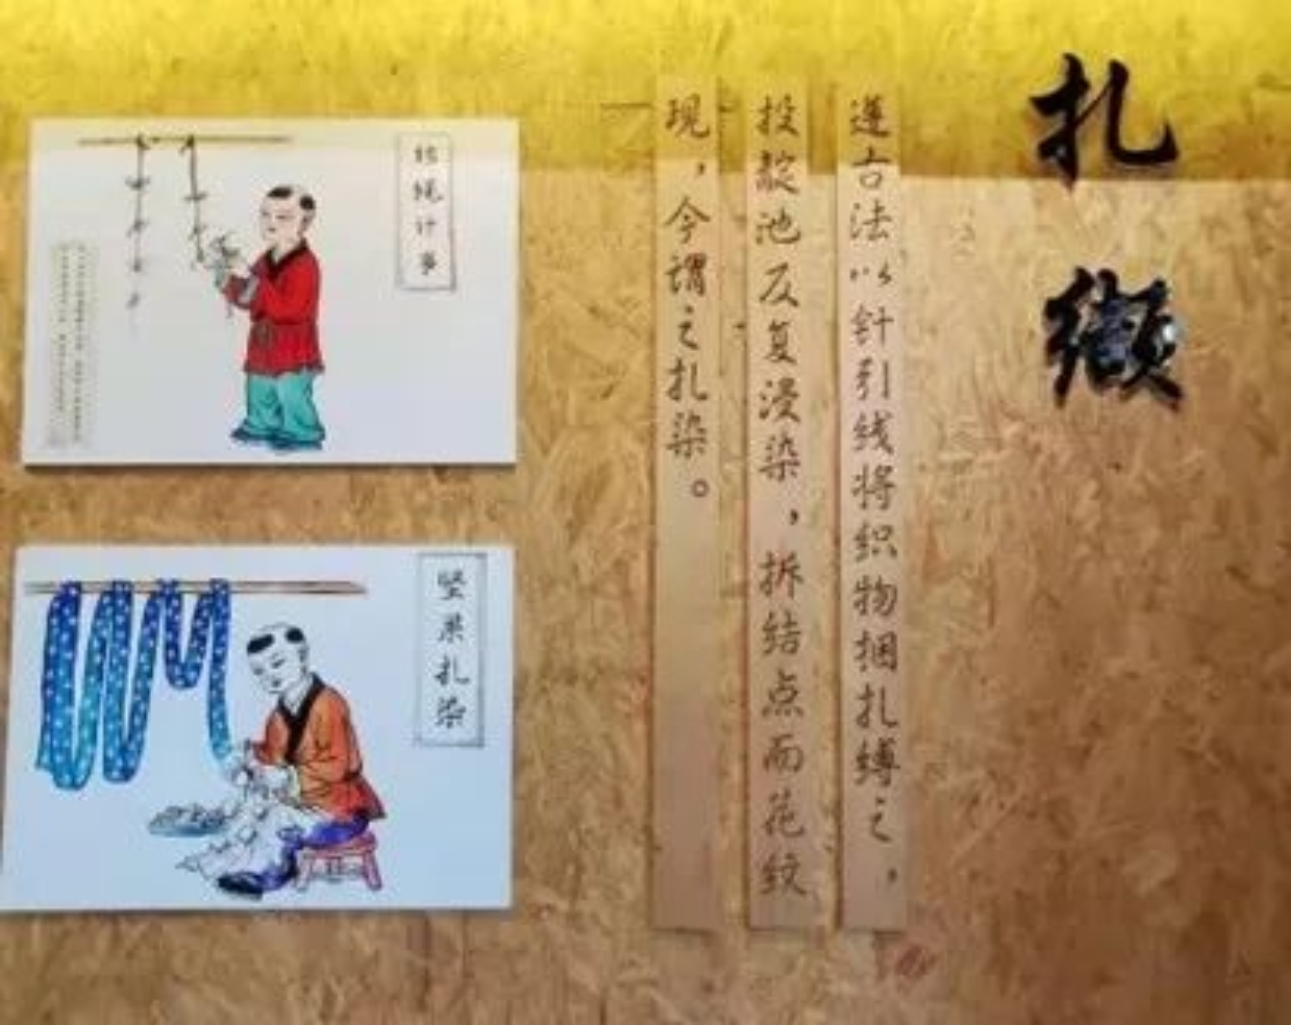 扎缬
遵古法以针引线将织物捆扎缚之，
投靛池反复浸染，拆结点而花纹
现，今谓之扎染。
结绳计事
坚果扎染